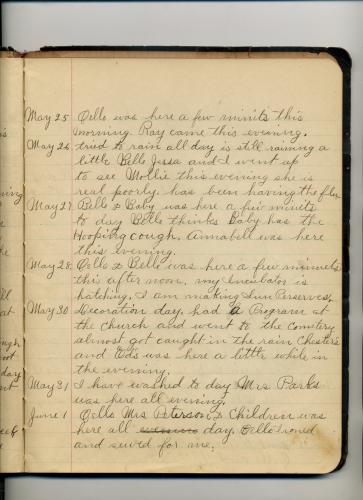 May 25 Delle was here a few minits this
morning. Ray came this evening.
May 26 tried to rain all day is still raining a
little Belle Jessa and I went up
to see Mollie this evening she is
real poorly. has been having the flue
May 27 Belle & Baby was here a few minits
to day Belle thinks Baby has the
Hooping cough. Annabell was here
this evening.
May 28 Delle & Belle was here a few minuets
this after noon. my Incubator is
hatching. I am making Sun Perserves.
May 30 Decoration day. had a Program at
the Church and went to the Cemetery
almost got caught in the rain Chesters
and Eds was here a little while in
the evening.
May 31 I have washed to day Mrs. Parks
was here all evening.
June 1 Delle Mrs Peterson & Children was
here all evening day. Delle Ironed
and sewed for me.